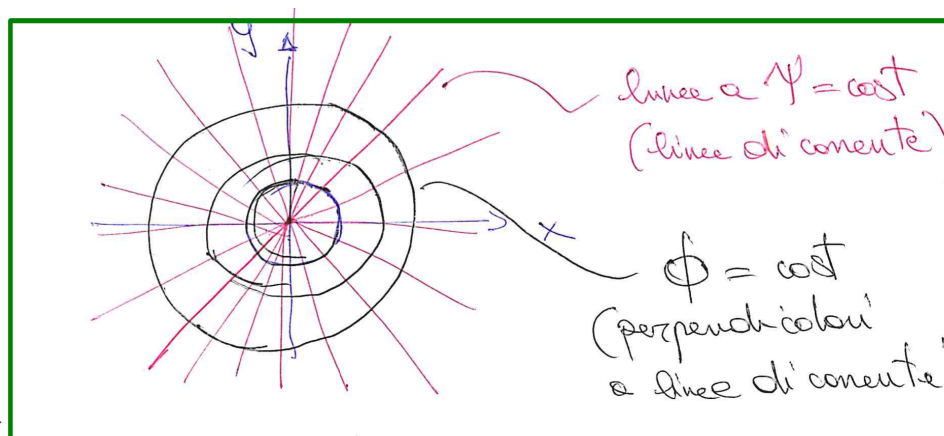 y
linee a Ψ = cost
(linee di corrente)
x
ϕ = cost
(perpendicolari
a linee di corrente